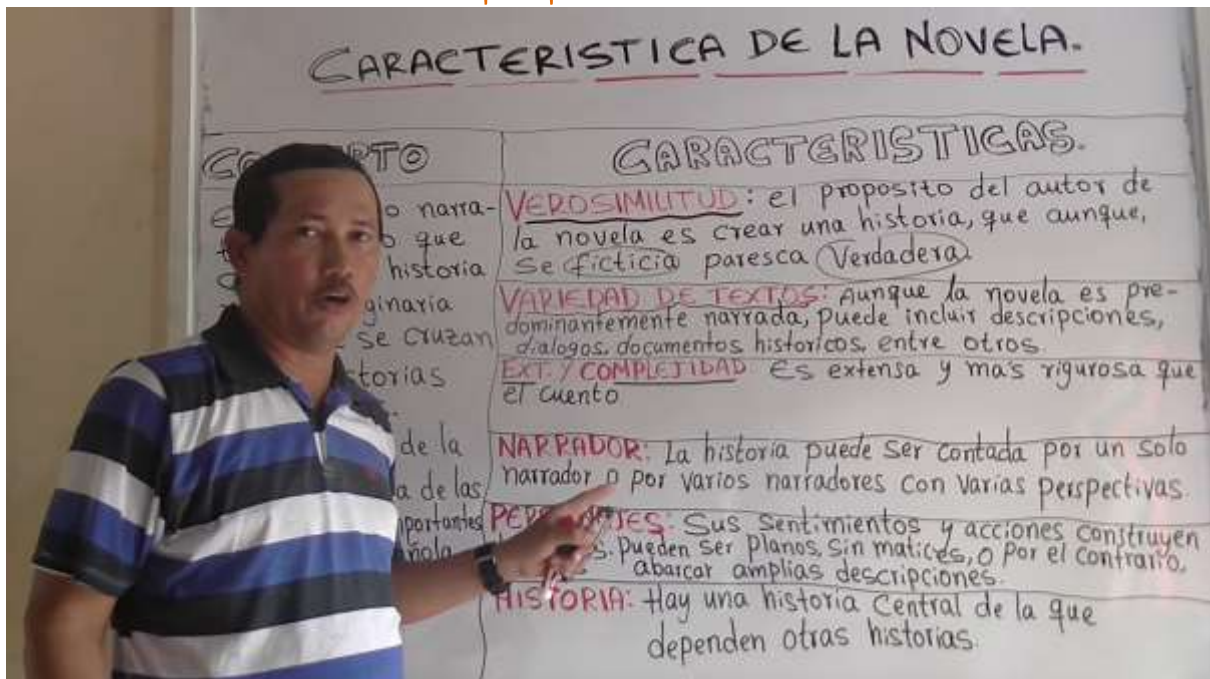 CARACTERISTICA DE LA NOVELA.
CARACTERISTICAS.
o narra-
o que
historia
ginaria
se cruzan
torias
de la
a de las
portantes
ñola
VEROSIMILITUD: el proposito del autor de
la novela es crear una historia, que aunque,
se ficticia paresca Verdadera.
VARIEDAD DE TEXTOS: Aunque la novela es pre-
dominantemente narrada, puede incluir descripciones,
dialogos, documentos historicos, entre otros.
EXT. Y COMPLEJIDAD Es extensa y mas rigurosa que
el cuento
NARRADOR: La historia puede ser contada por un solo
narrador o por varios narradores con varias perspectivas.
Sus sentimientos y acciones construyen
Pueden ser planos, sin matices, o por el contrario,
abarcar amplias descripciones.
HISTORIA: Hay una historia central de la que
dependen otras historias.